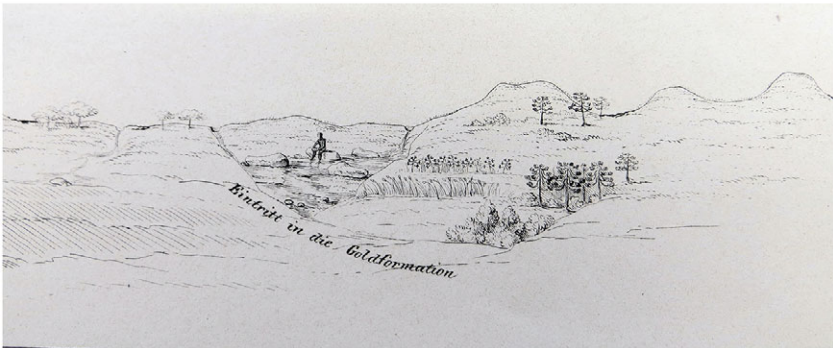 Eintritt in die Goldformation